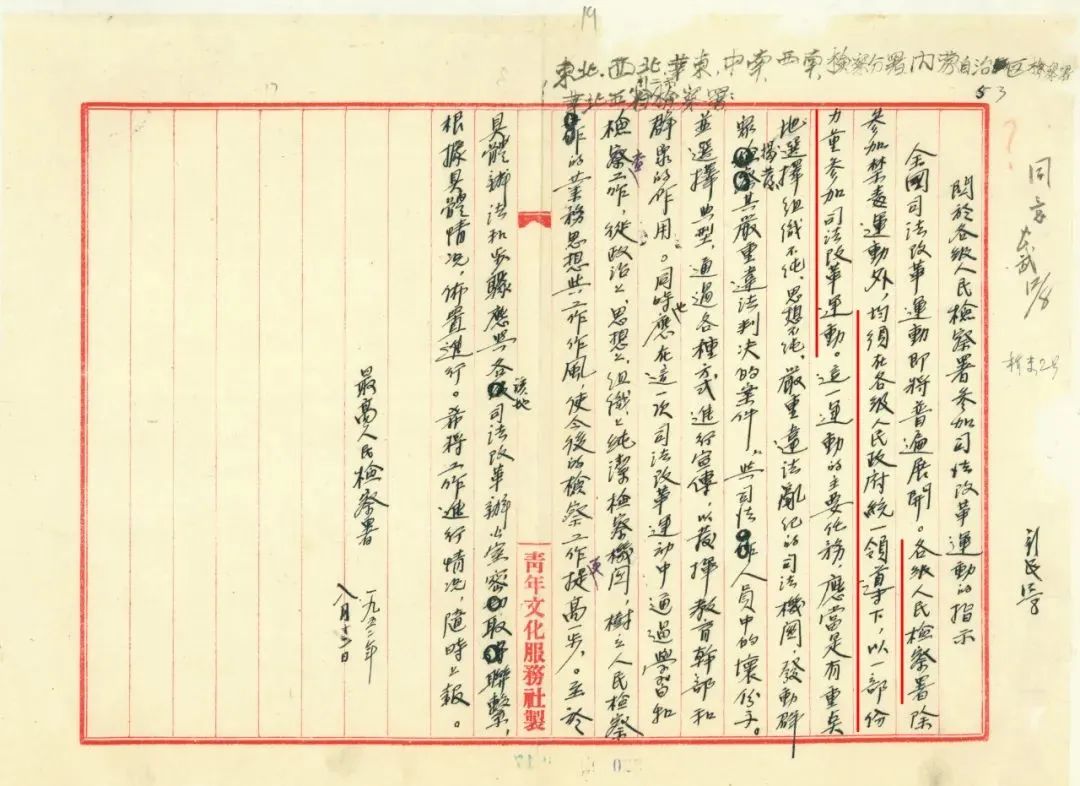 19
東北、西北、華東、中南、西南檢察分署，內蒙自治區檢察署
華北五省二市檢察署：
53
？
關於各級人民檢察署參加司法改革運動的指示
全國司法改革運動即將普遍展開。各級人民檢察署除
參加禁毒運動外，均須在各級人民政府統一領導下，以一部份
力量參加司法改革運動。這一運動的主要任務，應當是有重點
地選擇組織不純、思想不純、嚴重違法亂紀的司法機關，發動群
眾揭發其嚴重違法判決的案件，與司法人員中的壞份子。
並選擇典型，通過各種方式進行宣傳，以發揮教育幹部和
群眾的作用。同時也應在這一次司法改革運動中通過學習和
檢查工作，從政治上、思想上、組織上純潔檢察機關，樹立人民檢察
工作的業務思想與工作作風，使今後的檢察工作更提高一步。至於
具體辦法和步驟應與各該地司法改革辦公室密切取得聯繫，
根據具體情況，佈置進行。希將工作進行情況，隨時上報。
最高人民檢察署
一九五二年
八月十二日
青年文化服務社製
同意